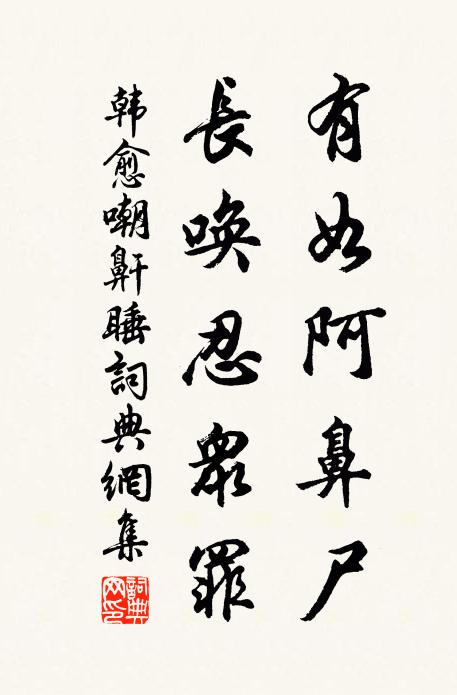 有如阿鼻尸
長唤忍衆罪
韩愈嘲鼾睡詞典網集
詞典網印